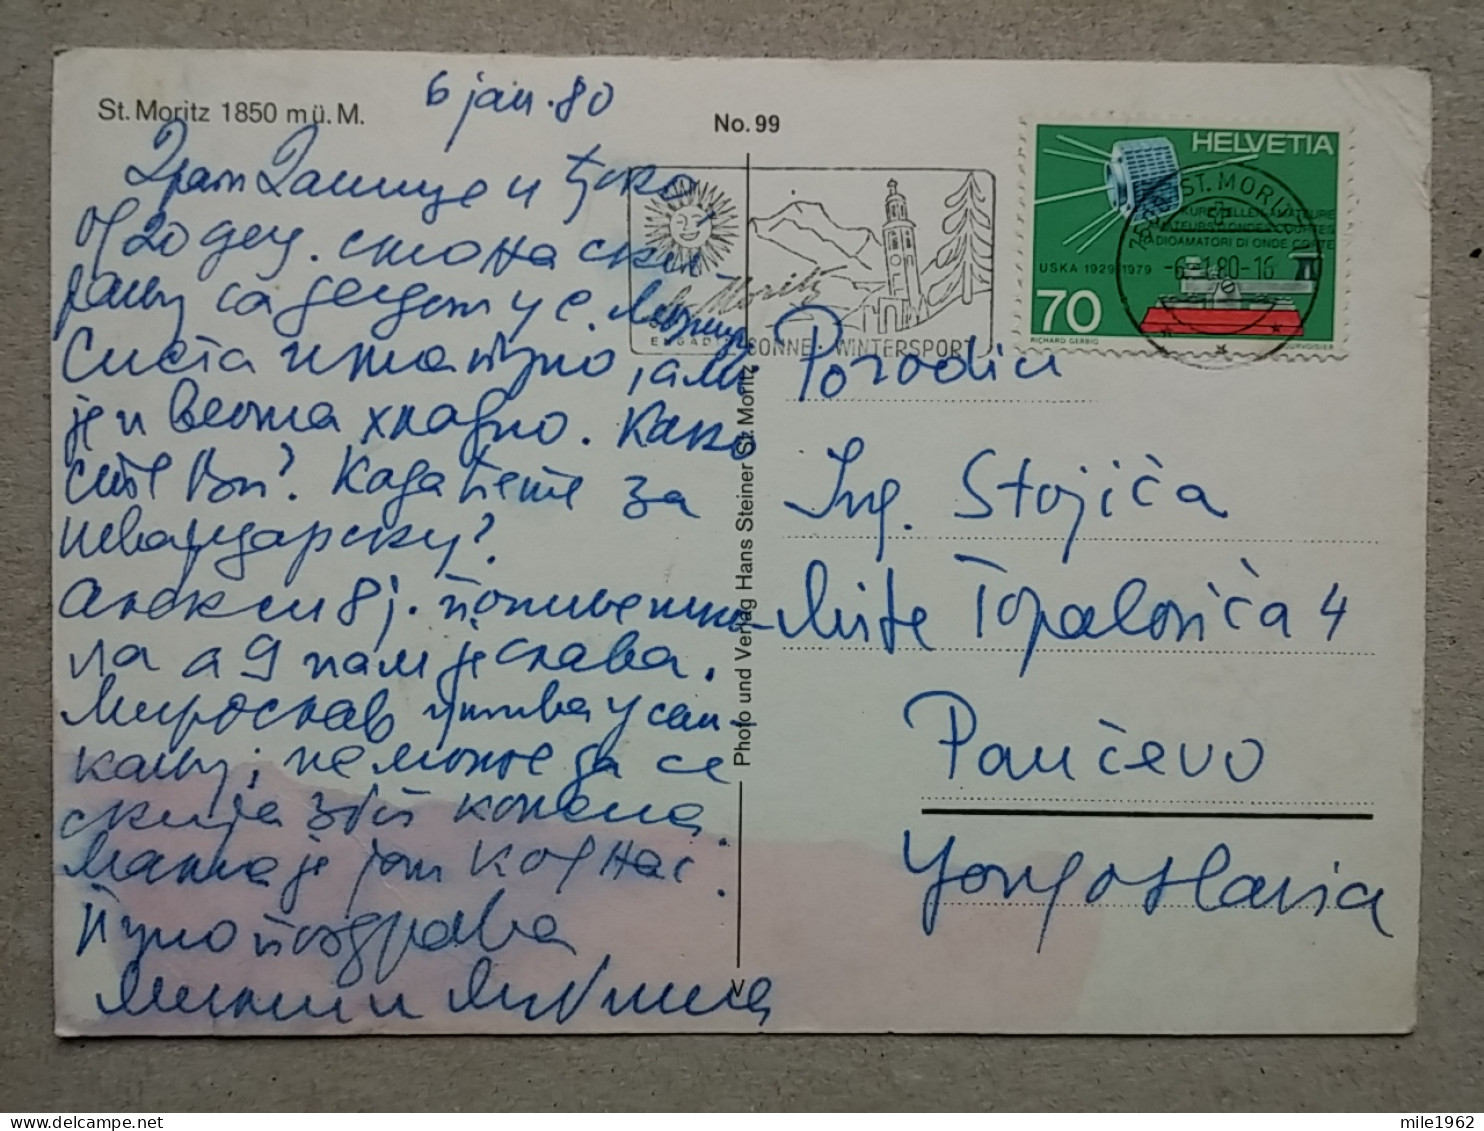 St. Moritz 1850 m ü. M.
6 jan. 80
No. 99
HELVETIA
KURZWELLEN-AMATEURE
AMATEURS ONDES COURTES
RADIOAMATORI DI ONDE CORTE
USKA 1929-1979
70
RICHARD GERBIG
COURVOISIER
ST. MORITZ
-6.-1.80-16
St. Moritz
ENGADIN SONNE WINTERSPORT
Драги Данице и
од 20 дец. смо на ски-
јању са дедом у с. Морицу
Снега има пуно, али
је и веома хладно. Како
сте Ви? Када ћете за
Швајцарску?
Алекси 8 ј. полివ
ла а 9 нам је слава.
Мирослав ужива у сан-
кању, не може да се
скија због колена.
Мама је још код нас.
Пуно поздрава
Милан и Љубинка
Porodici
Ing. Stojića
Mite Topalovića 4
Pančevo
Yougoslavia
Photo und Verlag Hans Steiner St. Moritz
mile1962